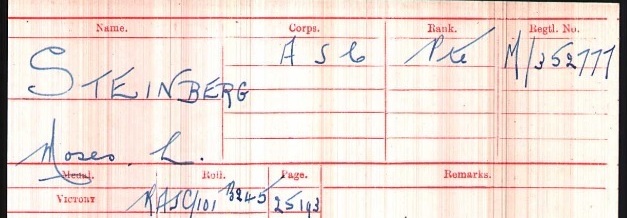 Name. Corps. Rank. Regtl. No.
STEINBERG A S C Pte M/352777
Moses. L.
Medal. Roll. Page. Remarks.
VICTORY RASC/101 B245 25193